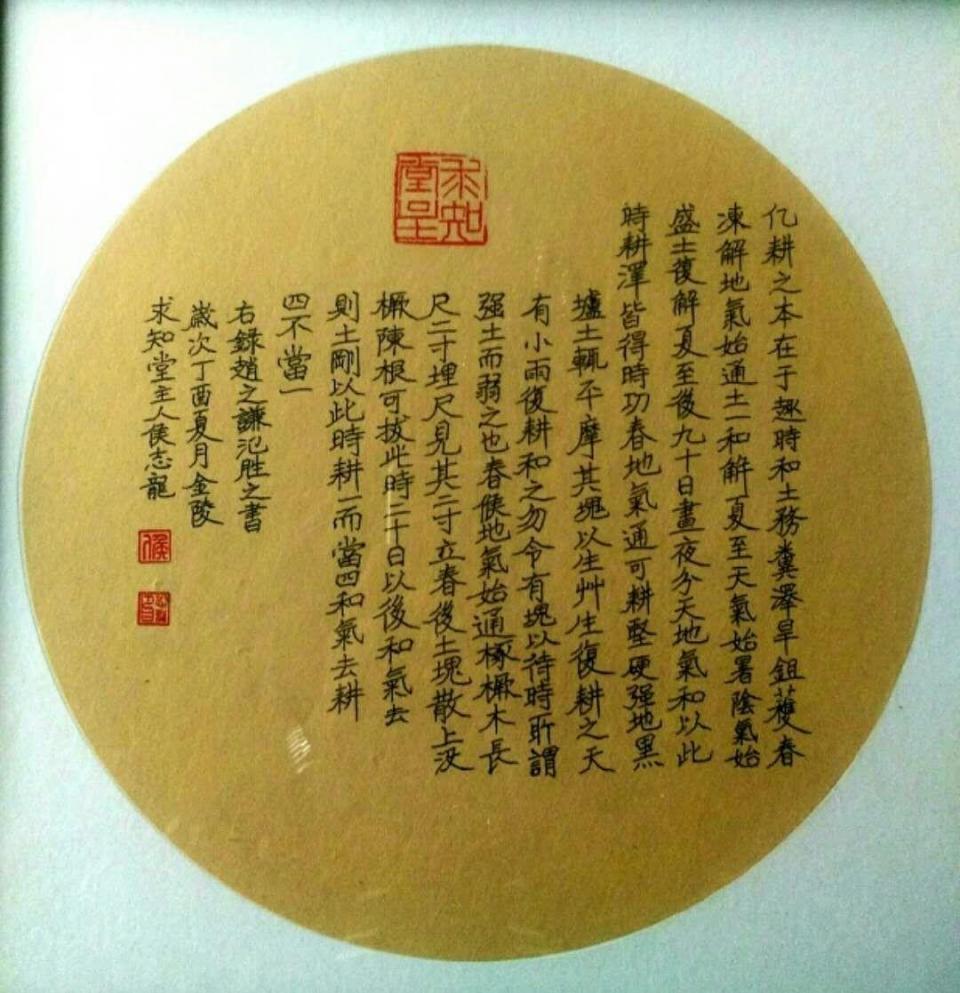 亿耕之本在于趣時和土務糞澤旱鉏穫春
凍解地氣始通土一和解夏至天氣始暑陰氣始
盛土復解夏至後九十日晝夜分天地氣和以此
時耕澤皆得時功春地氣通可耕堅硬强地黑
壚土輒平摩其塊以生艸生復耕之天
有小雨復耕和之勿令有塊以待時所謂
强土而弱之也春候地氣始通椓橛木長
尺二寸埋尺見其二寸立春後土塊散上没
橛陳根可拔此時二十日以後和氣去
則土剛以此時耕一而當四和氣去耕
四不當一
右錄趙之謙氾胜之書
歲次丁酉夏月金陵
求知堂主人侯志龍
求知堂呈
侯